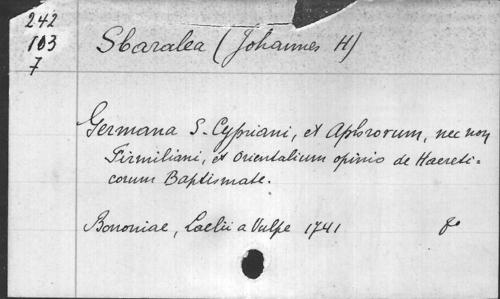 242
103
7
Sbaralea (Johannes H)
Germana S. Cypriani, et Aphrorum, nec non
Firmiliani, et Orientalium opinio de Haereti-
corum Baptismate.
Bononiae, Laelii a Vulpe 1741